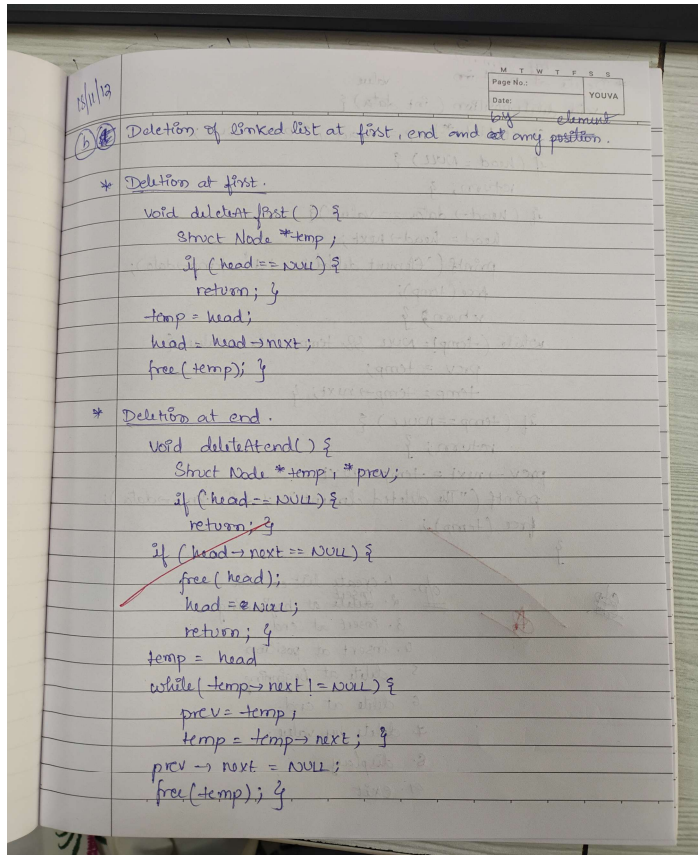 M T W T F S S
Page No.:
Date:
YOUVA
15/11/12
by element
b Deletion of linked list at first, end and at any position.
* Deletion at first.
void deleteAt first( ) {
Struct Node *temp;
if (head == NULL) {
return; }
temp = head;
head = head → next;
free(temp); }
* Deletion at end.
void deleteAtend() {
Struct Node *temp, *prev;
if (head == NULL) {
return; }
if (head → next == NULL) {
free(head);
head = NULL;
return; }
temp = head
while(temp → next != NULL) {
prev = temp;
temp = temp → next; }
prev → next = NULL;
free(temp); }